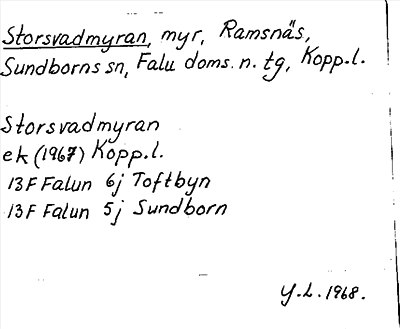 Storsvadmyran, myr, Ramsnäs,
Sundborns sn, Falu doms. n. tg, Kopp.l.
Storsvadmyran
ek (1967) Kopp.l.
13F Falun 6j Toftbyn
13F Falun 5j Sundborn
Y.L. 1968.